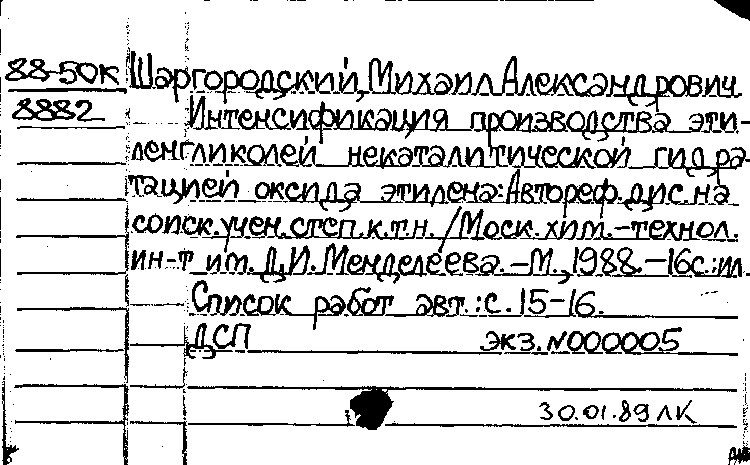 88-50К Шаргородский, Михаил Александрович
8882 Интенсификация производства эти-
ленгликолей некаталитической гидра-
тацией оксида этилена: Автореф. дис. на
соиск. учен. степ. к.т.н. / Моск. хим.-технол.
ин-т им. Д.И. Менделеева. – М., 1988. – 16с.: ил.
Список работ авт.: с. 15-16.
ДСП экз. N000005
30.01.89 ЛК